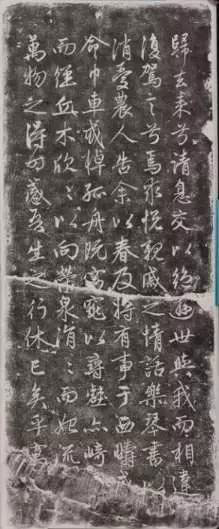 歸去來兮請息交以絕遊世與我而相違
復駕言兮焉求悅親戚之情話樂琴書以
消憂農人告余以春及將有事于西疇或
命巾車或棹孤舟既窈窕以尋壑亦崎
而經丘木欣〻以向榮泉涓〻而始流
萬物之得時感吾生之行休已矣乎寓